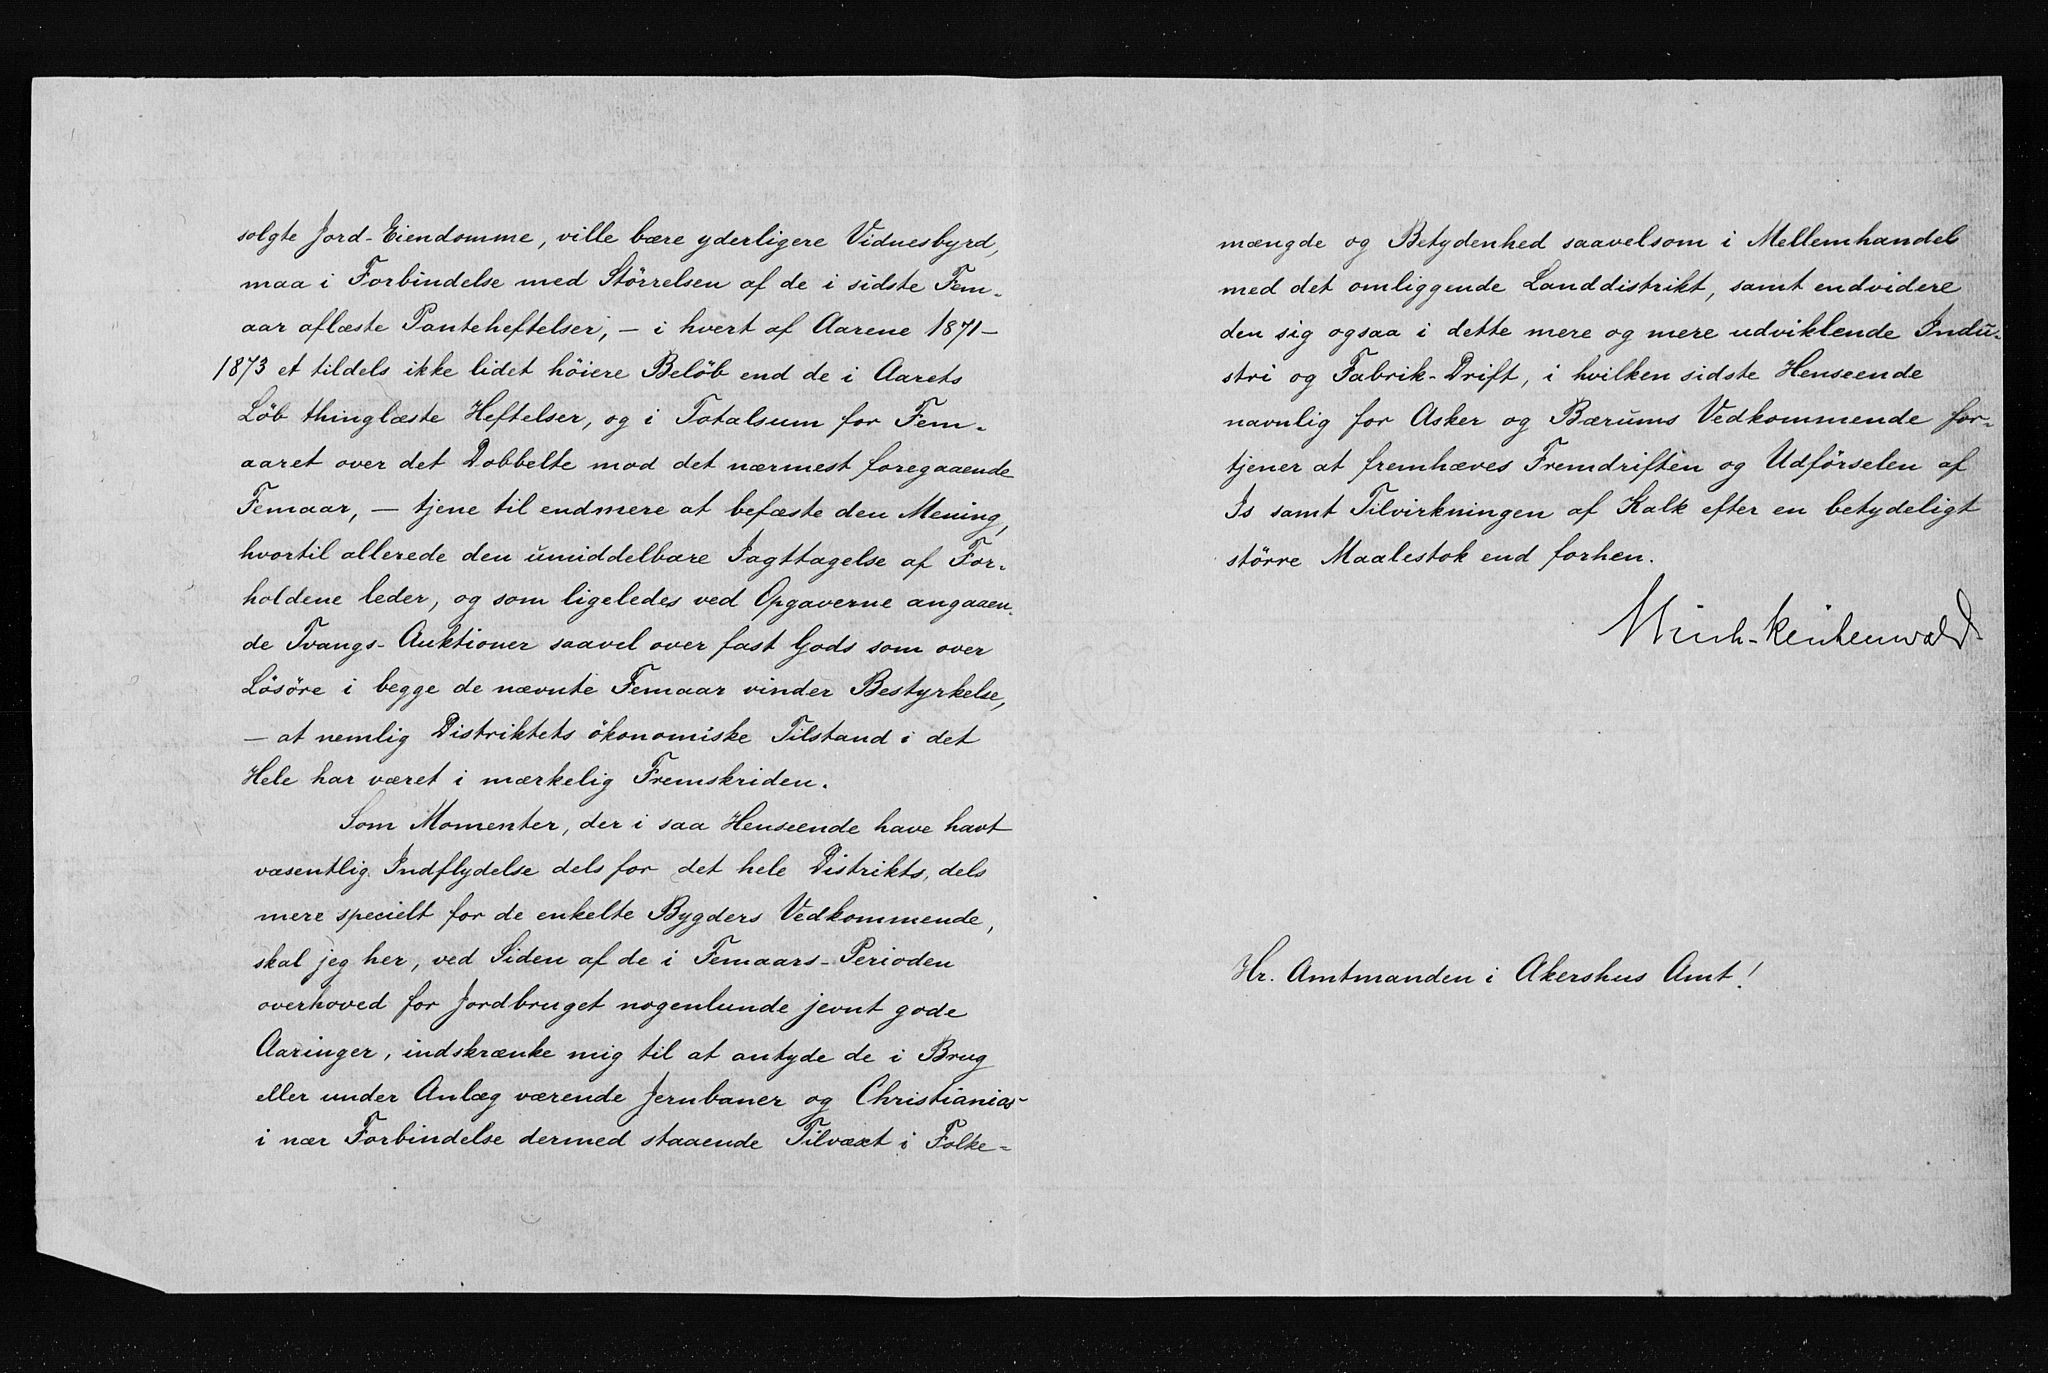 solgte Jord-Eiendomme, ville bære yderligere Vidnesbyrd,
maa i Forbindelse med Størrelsen af de i sidste Fem-
aar aflæste Panteheftelser, — i hvert af Aarene 1871—
1873 et tildels ikke lidet höiere Beløb end de i Aarets
Löb thinglæste Heftelser, og i Totalsum for Fem-
aaret over det Dobbelte mod det nærmest foregaaende
Femaar, — tjene til endmere at befæste den Mening,
hvortil allerede den umiddelbare Iagttagelse af For-
holdene leder, og som ligeledes ved Opgaverne angaaen-
de Tvangs-Auktioner saavel over fast Gods som over
Lösöre i begge de nævnte Femaar vinder Bestyrkelse,
— at nemlig Distriktets ökonomiske Tilstand i det
Hele har været i mærkelig Fremskriden.
Som Momenter, der i saa Henseende have havt
væsentlig Indflydelse dels for det hele Distrikts, dels
mere specielt for de enkelte Bygders Vedkommende,
skal jeg her, ved Siden af de i Femaars-Perioden
overhoved for Jordbruget nogenlunde jevnt gode
Aaringer, indskrænke mig til at antyde de i Brug
eller under Anlæg værende Jernbaner og Christianias
i nær Forbindelse dermed staaende Tilvæxt i Folke-
mængde og Betydenhed saavelsom i Mellemhandel
med det omliggende Landdistrikt, samt endvidere
den sig ogsaa i dette mere og mere udviklende Indu-
stri og Fabrik-Drift, i hvilken sidste Henseende
navnlig for Asker og Bærums Vedkommende for-
tjener at fremhæves Fremdriften og Udförselen af
Is samt Tilvirkningen af Kalk efter en betydeligt
större Maalestok end forhen.
Hr. Amtmanden i Akershus Amt!